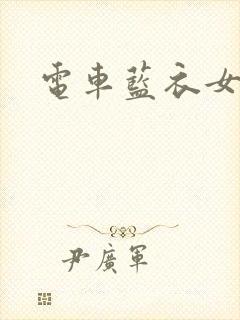 電車藍衣女
尹廣軍